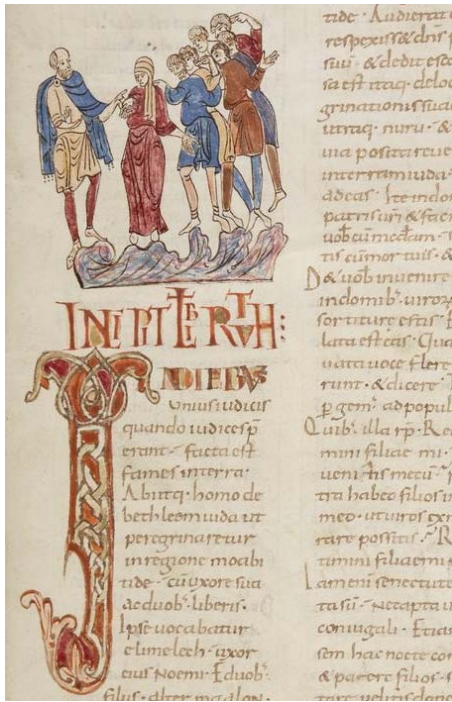 INCIPIT LIBER RUTH:
IN DIEBUS
Unius iudicis
quando iudices p̄
erant · facta est
fames in terra ·
Abiitq· homo de
bethleem iuda ut
peregrinaretur
in regione moabi
tide · cū uxore sua
ac duob· liberis ·
Ipse uocabatur
elimelech · uxor
eius Noemi · E duob·
filiis · alter maalon ·
tide · Audierat e
respexiss& dn̄s p
suū · & dedit esca
sa est itaq· de loc
grinationis suae
utraq· nuru · &
uia posita reue
in terram iuda ·
ad eas · Ite in dom
patris ur̄i & faci
uob̄ cū m̄ · s
tis cū mortuis · &
D& uob̄ inuenire
in domib· uiroꝝ
sortiturę estis · E
lata est eas · Qua
uata uoce flere
runt · & dicere ·
p gem· ad popul
Quib· illa rp̄ · Re
mini filiae mi ·
uenitis mecū ·
tra habeo filios i
meo · ut uiros ex
rare possitis · R
timini filiae mi
iam enī senectute
ta sū · nec apta ui
coniugali · Etiam
sem hac nocte con
& parere filios · s
tare uelitis donec